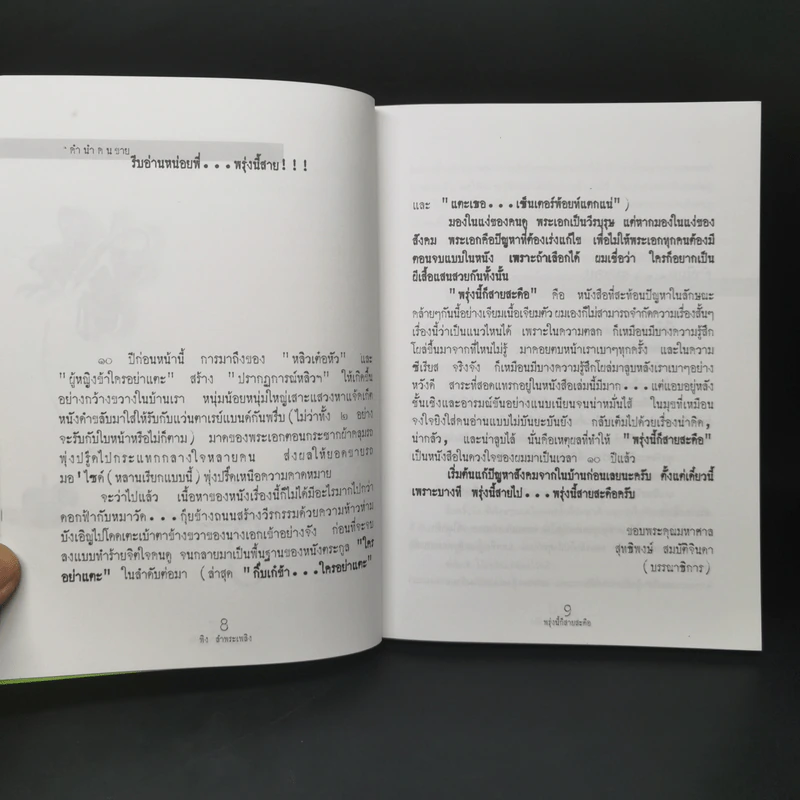 คำนำคนขาย
รีบอ่านหน่อยพี่...พรุ่งนี้สาย!!!
๑๐ ปีก่อนหน้านี้ การมาถึงของ "หลิวเต๋อหัว" และ
"ผู้หญิงข้าใครอย่าแตะ" สร้าง "ปรากฏการณ์หลิวฯ" ให้เกิดขึ้น
อย่างกว้างขวางในบ้านเรา หนุ่มน้อยหนุ่มใหญ่เสาะแสวงหาแจ็คเก็ต
หนังดำขลับมาใส่ให้รับกับแว่นตาเรย์แบนด์กันพรึ่บ (ไม่ว่าทั้ง ๒ อย่าง
จะรับกับใบหน้าหรือไม่ก็ตาม) มาดของพระเอกตอนกระชากผ้าคลุมรถ
พุ่งปรู๊ดไปกระแทกกลางใจหลายคน ส่งผลให้ยอดขายรถ
มอ'ไซค์ (หลานเรียกแบบนี้) พุ่งปรี๊ดเหนือความคาดหมาย
จะว่าไปแล้ว เนื้อหาของหนังเรื่องนี้ก็ไม่ได้มีอะไรมากไปกว่า
ดอกฟ้ากับหมาวัด...กุ๊ยข้างถนนสร้างวีรกรรมด้วยความห้าวห่าม
บังเอิญไปโดดเตะเบ้าตาข้างขวาของนางเอกเข้าอย่างจัง ก่อนที่จะจบ
ลงแบบทำร้ายจิตใจคนดู จนกลายมาเป็นพื้นฐานของหนังตระกูล "ใคร
อย่าแตะ" ในลำดับต่อมา (ล่าสุด "กิ๊บเก๋ข้า...ใครอย่าแตะ"
8
ทิง ลำพระเพลิง
และ "แตะเธอ...เซ็นเตอร์พ้อยท์แตกแน่")
มองในแง่ของคนดู พระเอกเป็นวีรบุรุษ แต่หากมองในแง่ของ
สังคม พระเอกคือปัญหาที่ต้องเร่งแก้ไข เพื่อไม่ให้พระเอกทุกคนต้องมี
ตอนจบแบบในหนัง เพราะถ้าเลือกได้ ผมเชื่อว่า ใครก็อยากเป็น
ผีเสื้อแสนสวยกันทั้งนั้น
"พรุ่งนี้ก็สายสะดือ" คือ หนังสือที่สะท้อนปัญหาในลักษณะ
คล้ายๆกันนี้อย่างเจียมเนื้อเจียมตัว ผมเองก็ไม่สามารถจำกัดความเรื่องสั้นๆ
เรื่องนี้ว่าเป็นแนวไหนได้ เพราะในความตลก ก็เหมือนมีบางความรู้สึก
โผล่ขึ้นมาจากที่ไหนไม่รู้ มาคอยตบหน้าเราเบาๆทุกครั้ง และในความ
ซีเรียส จริงจัง ก็เหมือนมีบางความรู้สึกโผล่มาลูบหลังเราเบาๆอย่าง
หวังดี สาระที่สอดแทรกอยู่ในหนังสือเล่มนี้มีมาก...แต่แอบอยู่หลัง
ชั้นเชิงและอารมณ์ขันอย่างแนบเนียนจนน่าหมั่นไส้ ในมุขที่เหมือน
จงใจปิงใส่คนอ่านแบบไม่บันยะบันยัง กลับเต็มไปด้วยเรื่องน่าคิด,
น่ากลัว, และน่าลูบไล้ นั่นคือเหตุผลที่ทำให้ "พรุ่งนี้ก็สายสะดือ"
เป็นหนังสือในดวงใจของผมมาเป็นเวลา ๑๐ ปีแล้ว
เริ่มต้นแก้ปัญหาสังคมจากในบ้านก่อนเลยนะครับ ตั้งแต่เดี๋ยวนี้
เพราะบางที พรุ่งนี้สายไป...พรุ่งนี้สายสะดือครับ
ขอบพระคุณมหาศาล
สุทธิพงษ์ สมบัติจินดา
(บรรณาธิการ)
9
พรุ่งนี้ก็สายสะดือ